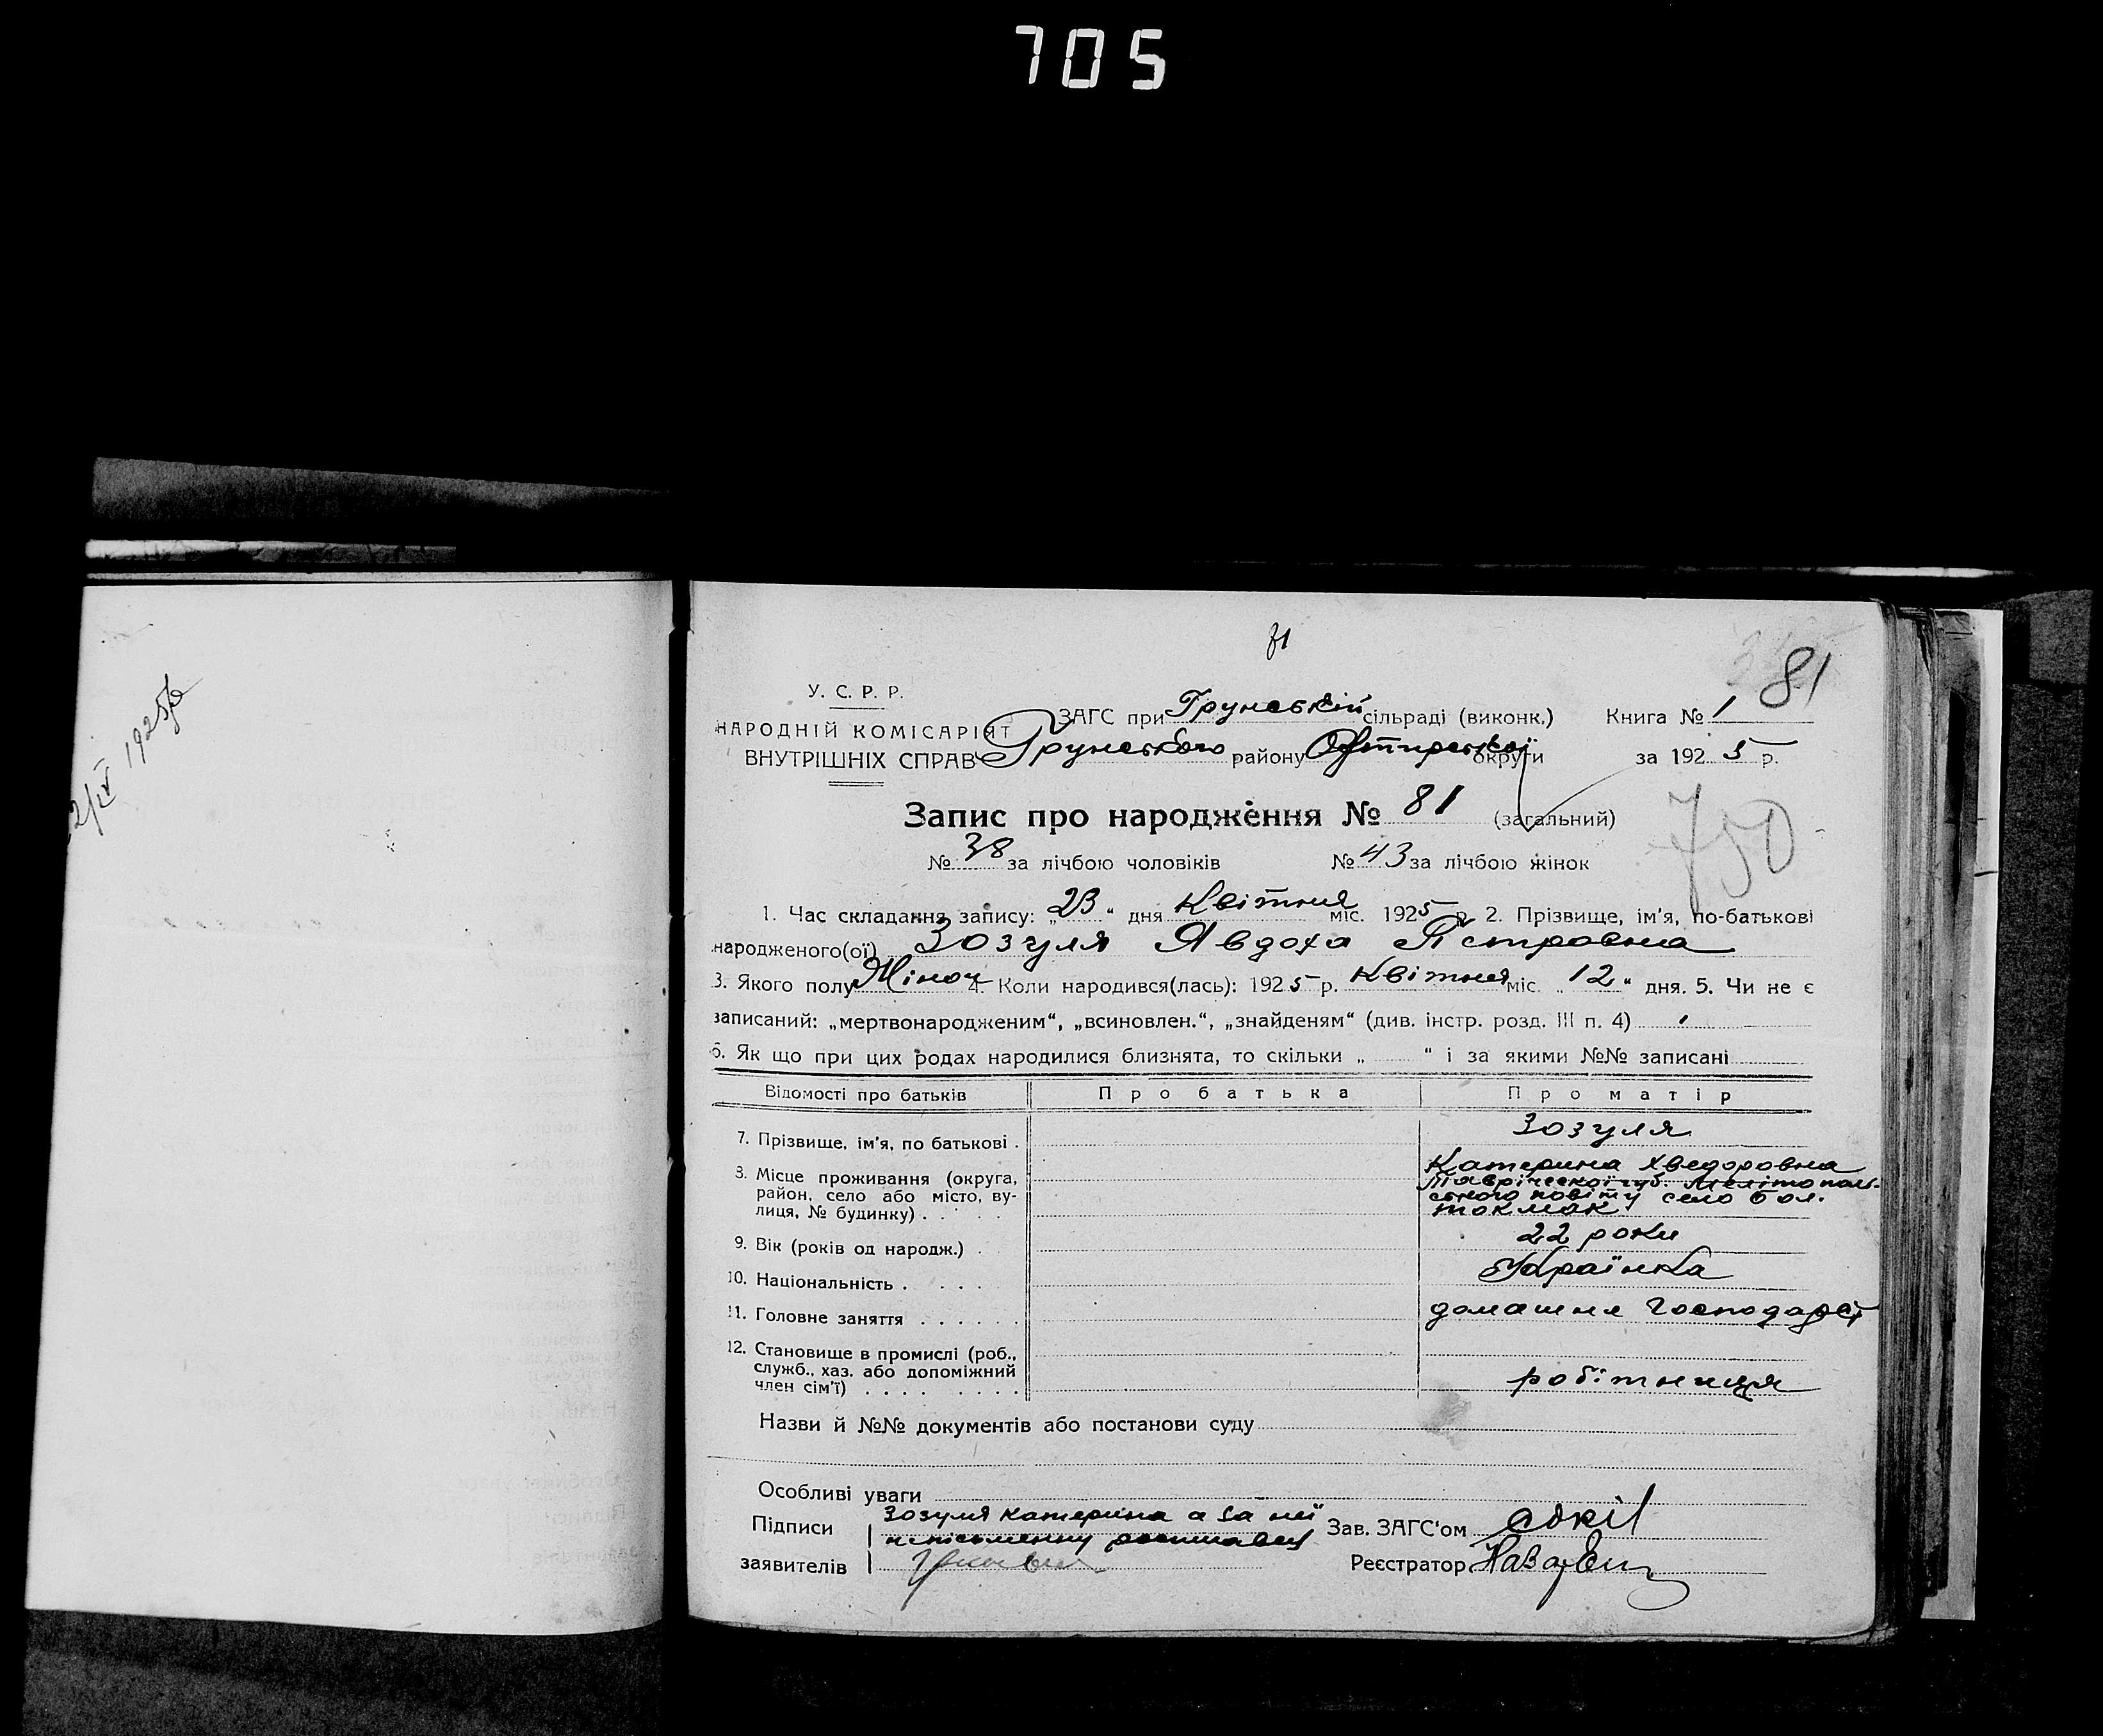 705
81
У. С. Р. Р.
НАРОДНІЙ КОМІСАРІЯТ
ВНУТРІШНІХ СПРАВ
ЗАГС при Грунській сільраді (виконк.) Книга № 1
Грунського району округи за 1925 р.
Запис про народження № 81 (загальний)
750
№ 38 за лічбою чоловіків № 43 за лічбою жінок
1. Час складання запису: „23“ дня Квітня міс. 1925 р. 2. Прізвище, ім'я, по-батькові
народженого(ої) Зозуля Явдоха Петровна
3. Якого полу Жіноч 4. Коли народився(лась): 1925 р. Квітня міс. „12“ дня. 5. Чи не є
записаний: „мертвонародженим“, „всиновлен.“, „знайденям“ (див. інстр. розд. III п. 4)
6. Як що при цих родах народилися близнята, то скільки „ “ і за якими №№ записані
Відомості про батьків Про батька Про матір
7. Прізвище, ім'я, по батькові . Зозуля
Катерина Хведоровна
3. Місце проживання (округа, район, село або місто, вулиця, № будинку) . . . . .
Таврическої губ. Мелітопольського повіту село Бол. Токмак
9. Вік (років од народж.) . 22 роки
10. Національність . . . . . Українка
11. Головне заняття . . . . . . домашнє
12. Становище в промислі (роб., служб., хаз. або допоміжний член сім'ї) . . . . . . . . робітниця
Назви й №№ документів або постанови суду
Особливі уваги
Підписи заявителів
Зозуля Катерина а за неї
Зав. ЗАГС'ом
Реєстратор